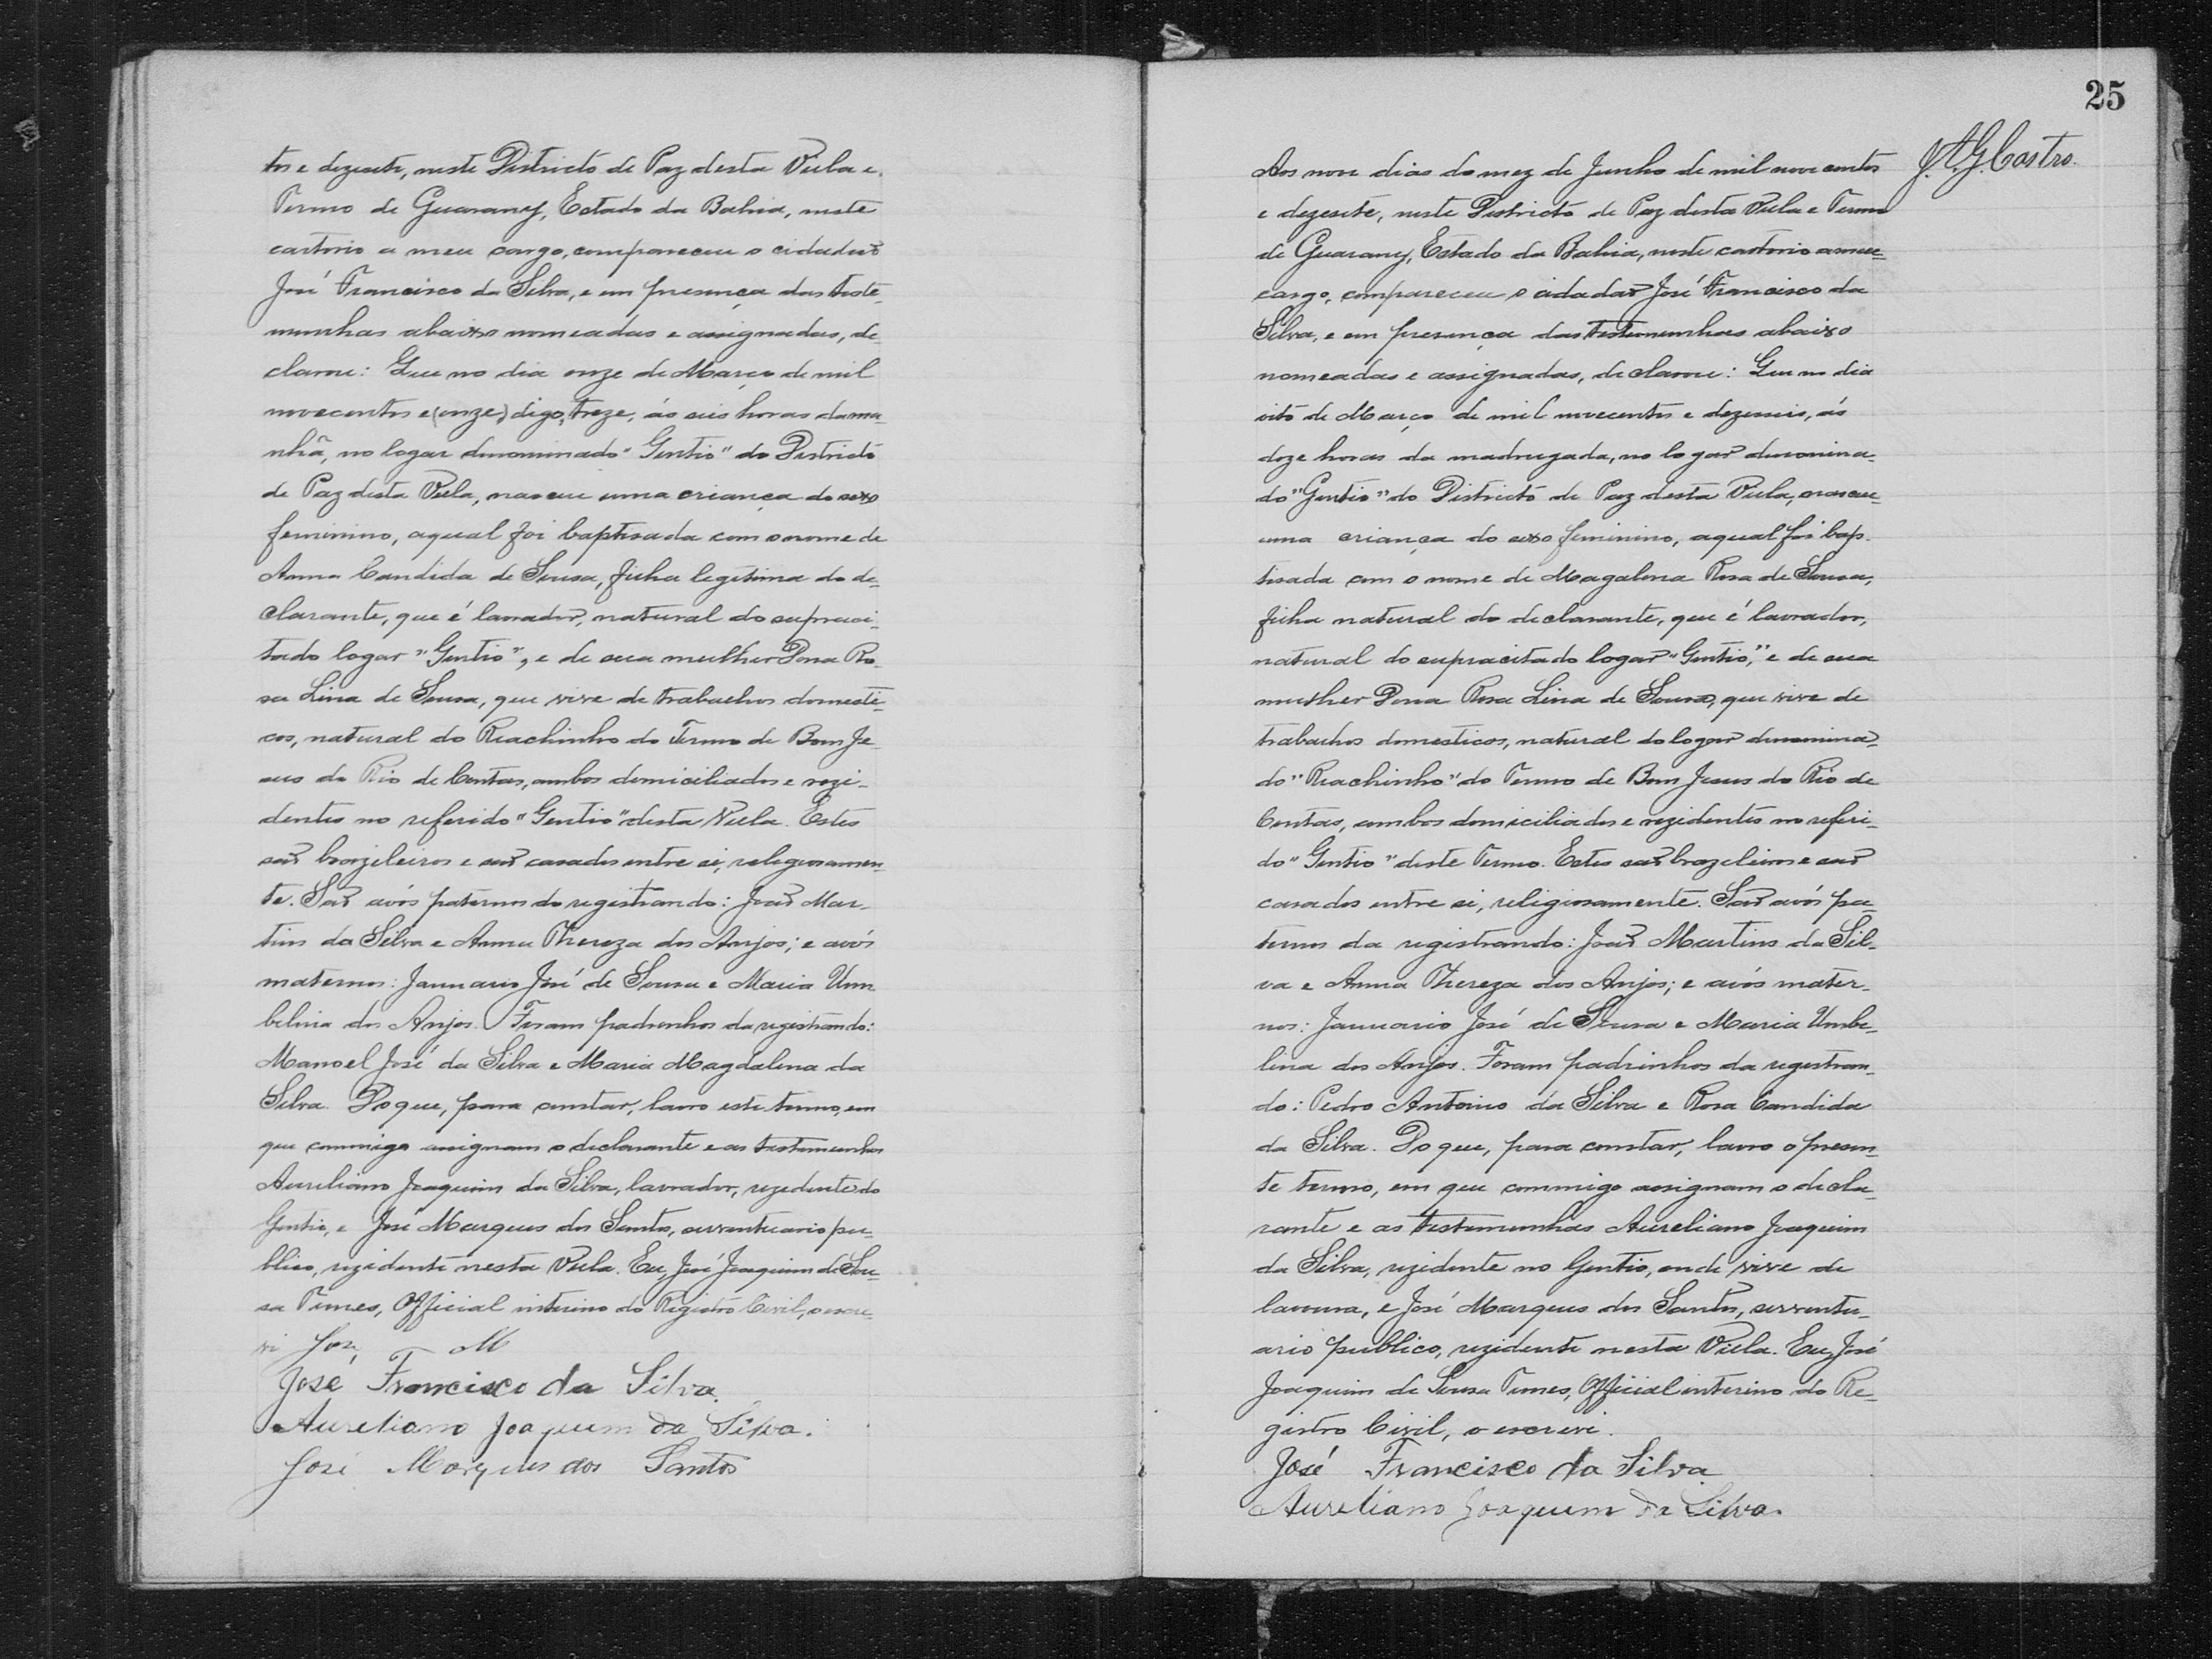 tos e dezesete, neste Districto de Paz desta Villa e
Termo de Guarany, Estado da Bahia, neste
cartorio a meu cargo, compareceu o cidadão
José Francisco da Silva, e em presença das teste-
munhas abaixo nomeadas e assignadas, de-
clarou: Que no dia onze de Março de mil
novecentos e (onze) digo, treze, ás seis horas da ma-
nhã, no logar denominado "Gentio" do Districto
de Paz desta Villa, nasceu uma criança do sexo
feminino, aqual foi baptisada com o nome de
Anna Candida de Sousa, filha legitima do de-
clarante, que é lavrador, natural do supraci-
tado logar "Gentio", e de sua mulher Dona Ro-
sa Lina de Sousa, que vive de trabalhos domesti-
cos, natural do Riachinho do Termo de Bom Je-
sus do Rio de Contas, ambos domiciliados e rezi-
dentes no referido "Gentio" desta Villa. Estes
são brazileiros e são casados entre si, religiosamen-
te. São avós paternos do registrando: João Mar-
tins da Silva e Anna Thereza dos Anjos; e avós
maternos: Januario José de Sousa e Maria Um-
belina dos Anjos. Foram padrinhos da registrando:
Manoel José da Silva e Maria Magdalena da
Silva. Do que, para constar, lavro este termo, em
que commigo assignam o declarante e as testemunhas
Aureliano Joaquim da Silva, lavrador, rezidente do
Gentio, e José Marques dos Santos, serventuario pu-
blico, rezidente nesta Villa. Eu, José Joaquim de Sou-
sa Tunes, Official interino do Registro Civil, o escre-
vi José M
José Francisco da Silva
Aureliano Joaquim da Silva.
José Marques dos Santos
25
J. A. G. Castro.
Aos nove dias do mez de Junho de mil nove centos
e dezesete, neste Districto de Paz desta Villa e Termo
de Guarany, Estado da Bahia, neste cartorio a meu
cargo, compareceu o cidadão José Francisco da
Silva, e em presença das testemunhas abaixo
nomeadas e assignadas, declarou: Que no dia
oito de Março de mil novecentos e dezesseis, ás
doze horas da madrugada, no logar denomina-
do "Gentio" do Districto de Paz desta Villa, nasceu
uma criança do sexo feminino, aqual foi bap-
tisada com o nome de Magalena Rosa de Sousa,
filha natural do declarante, que é lavrador,
natural do supracitado logar "Gentio," e de sua
mulher Dona Rosa Lina de Sousa, que vive de
trabalhos domesticos, natural do logar denomina-
do "Riachinho" do Termo de Bom Jesus do Rio de
Contas, ambos domiciliados e rezidentes no referi-
do "Gentio" deste Termo. Estes são brazileiros e são
casados entre si, religiosamente. São avós pa-
ternos da registrando: João Martins da Sil-
va e Anna Thereza dos Anjos; e avós mater-
nos: Januario José de Sousa e Maria Umbe-
lina dos Anjos. Foram padrinhos da registran-
do: Pedro Antonio da Silva e Rosa Candida
da Silva. Do que, para constar, lavro o presen-
te termo, em que commigo assignam o decla-
rante e as testemunhas Aureliano Joaquim
da Silva, rezidente no Gentio, onde vive de
lavoura, e José Marques dos Santos, serventu-
ario publico, rezidente nesta Villa. Eu, José
Joaquim de Sousa Tunes, Official interino do Re-
gistro Civil, o escrevi.
José Francisco da Silva
Aureliano Joaquim da Silva.